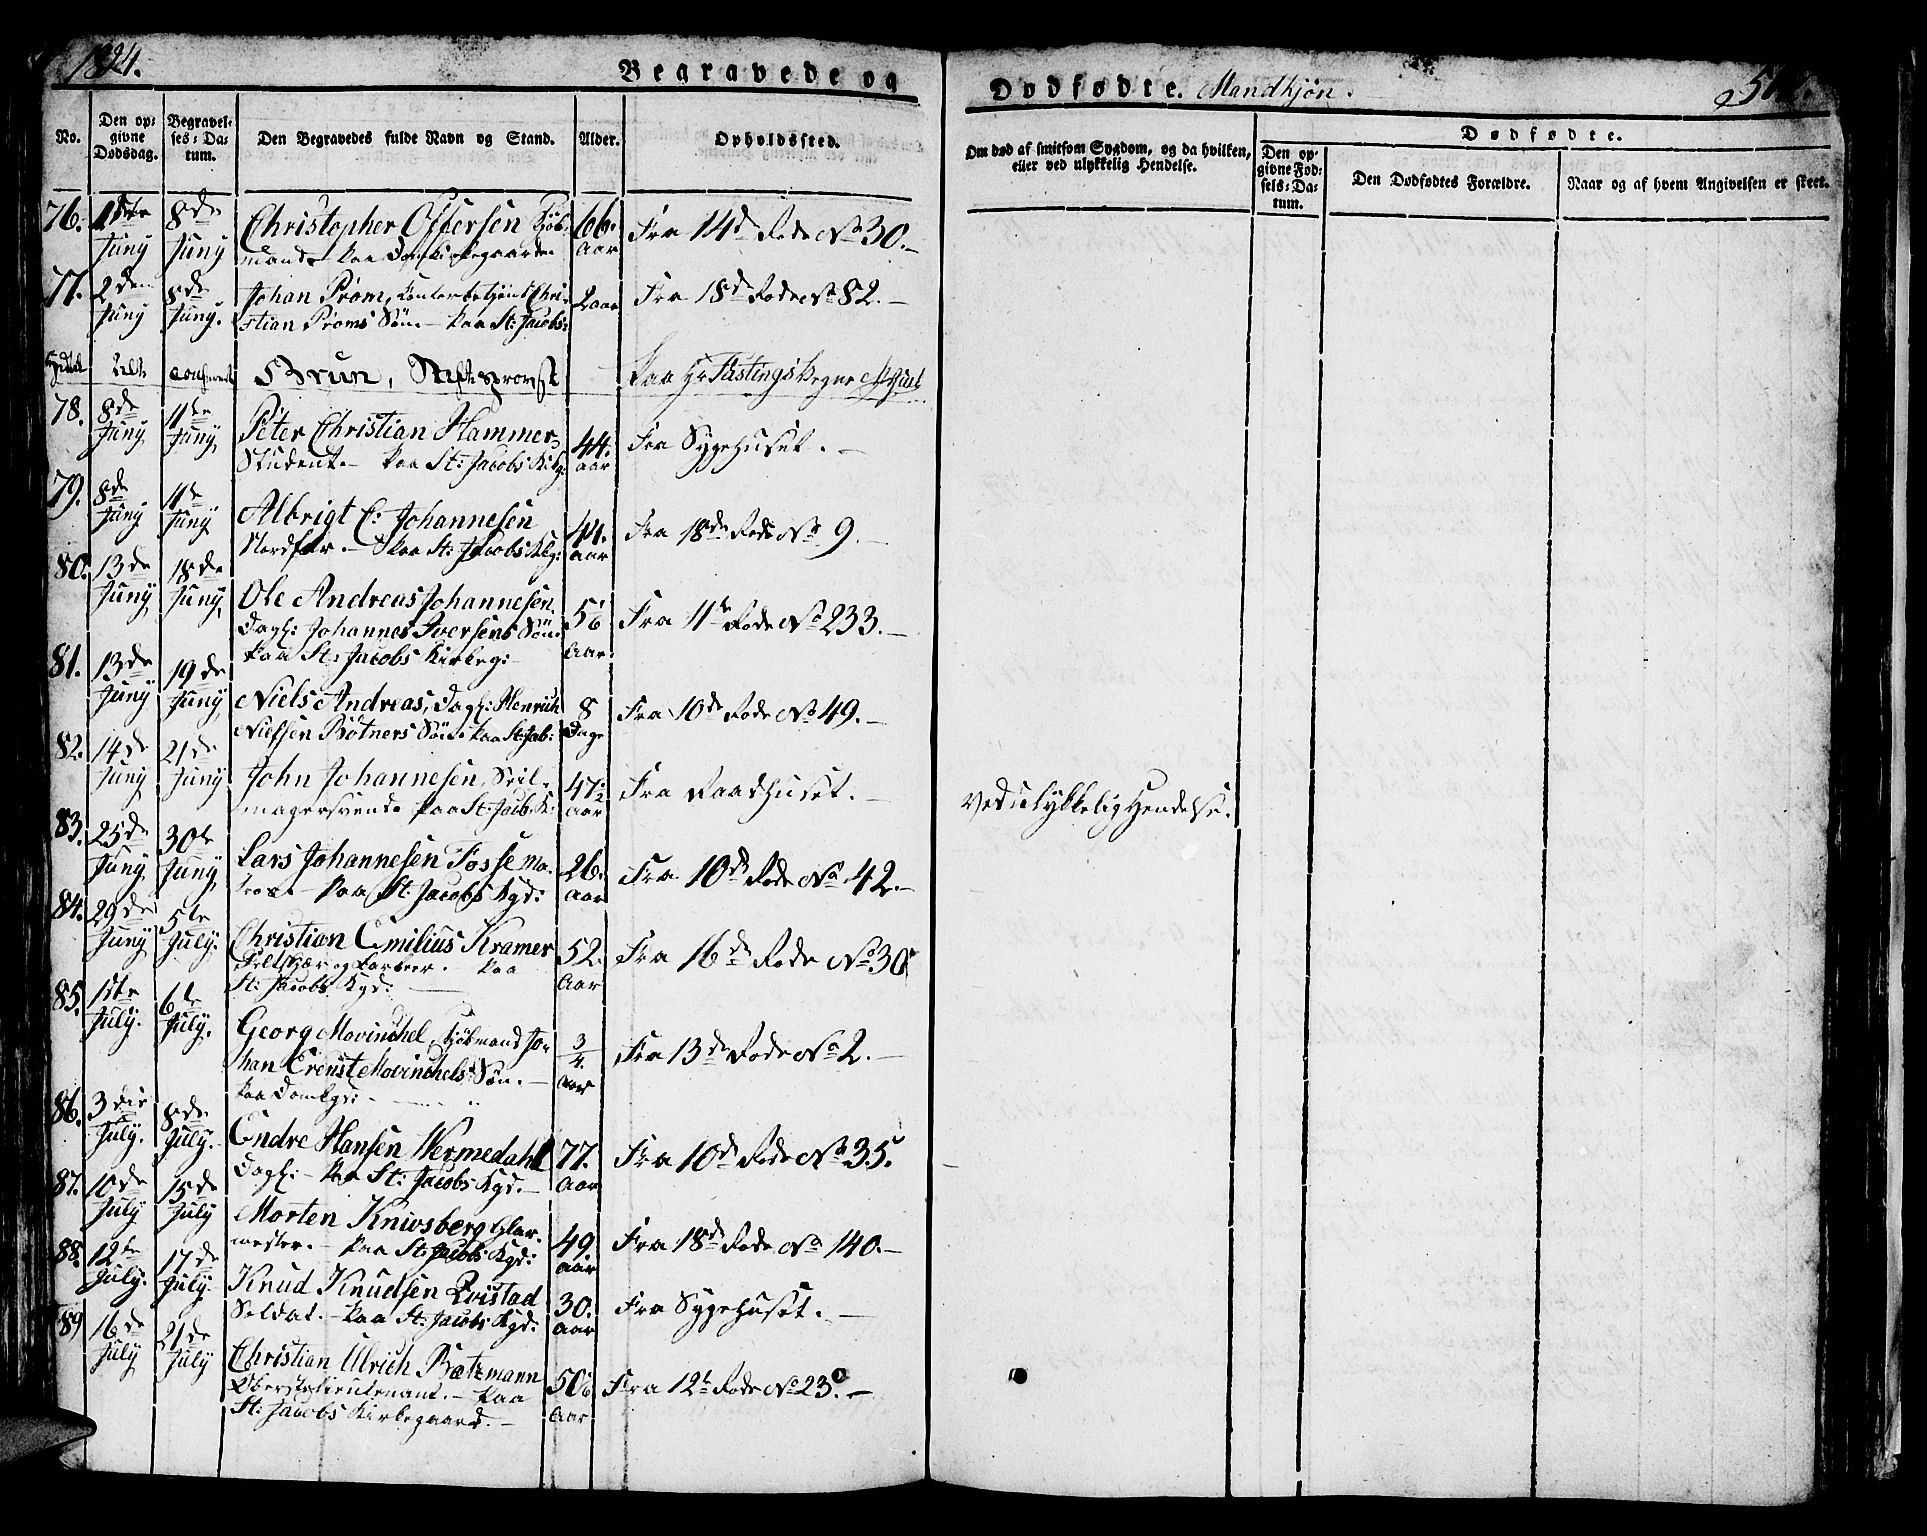 1824.
Begravede og
Dødfødte. Mandkjøn.
No.
Den op-
givne
Dødsdag.
Begravel-
ses-Da-
tum.
Den Begravedes fulde Navn og Stand.
Alder.
Opholdssted.
Om død af smitsom Sygdom, og da hvilken,
eller ved ulykkelig Hendelse.
Dødfødte.
Den op-
givne Fød-
sels-Da-
tum.
Den Dødfødtes Forældre.
Naar og af hvem Angivelsen er skeet.
76. 1ste Juny 8de Juny Christopher Offersen Kjøb-
mand. paa Domkirkegaarden 66. Aar Fra 14de Rode No 30.
77. 2den Juny 8de Juny. Johan Prom, Contorbetjent Chri-
stian Proms Søn. paa St: Jacobs: 2 aar Fra 18de Rode No 82.
Brun, Stiftsprovst paa
78. 8de Juny 11te Juny Peter Christian Hammer,
Student. paa St: Jacobs Kirkg: 44. aar Fra Sygehuset.
79. 8de Juny 11te Juny Albrigt C: Johannesen
Nordfar. Paa St: Jacobs Kkg: 44. aar Fra 18de Rode No 9.
80. 13de Juny 18de Juny Ole Andreas Johannesen,
Dagl: Johannes Iversens Søn.
paa St: Jacobs Kirkeg: Aar Fra 11te Rode No 233.
81. 13de Juny 19de Juny Niels Andreas, Dagl: Henrich
Nielsen Bøtners Søn. paa St: Jab: 8 Dage Fra 10de Rode No 49.
82. 14de Juny 21de Juny John Johannesen, Seil-
magersvend. paa St: Jacb: K: 47½ aar Fra Raadhuset. Ved ulykkelig Hendelse.
83. 25de Juny 30te Juny Lars Johannesen Fosse Ma-
tros. paa St: Jacobs Kgd: 26. Aar Fra 10de Rode No 42.
84. 29de Juny 5te July. Christian Emilius Kramer
Feltskær og Barbeer. paa
St: Jacobs Kgd: 52. Aar Fra 16de Rode No 30
85. 1ste July. 6te July. Georg Mowinchel, Kjøbmand Jo-
han Ernst Mowinchels Søn.
paa Domkgd: 3/4. aar Fra 13de Rode No 2.
86. 3die July. 8de July. Endre Hansen Wermedahl
Dagl: paa St: Jacobs Kgd. 77. Aar Fra 10de Rode No 35.
87. 10de July 15de July Morten Kniwsberg Glar-
mester. paa St: Jacobs Kgd: 49. aar Fra 18de Rode No 140.
88. 12te July. 17de July. Knud Knudsen Qvistad
Soldat. paa St: Jacobs Kgd: 30. aar Fra Sygehuset.
89 16de July 21de July Christian Ulrich Bætzmann
Oberstlieutenant. paa
St: Jacobs Kirkegaard. Aar Fra 12te Rode No 23.